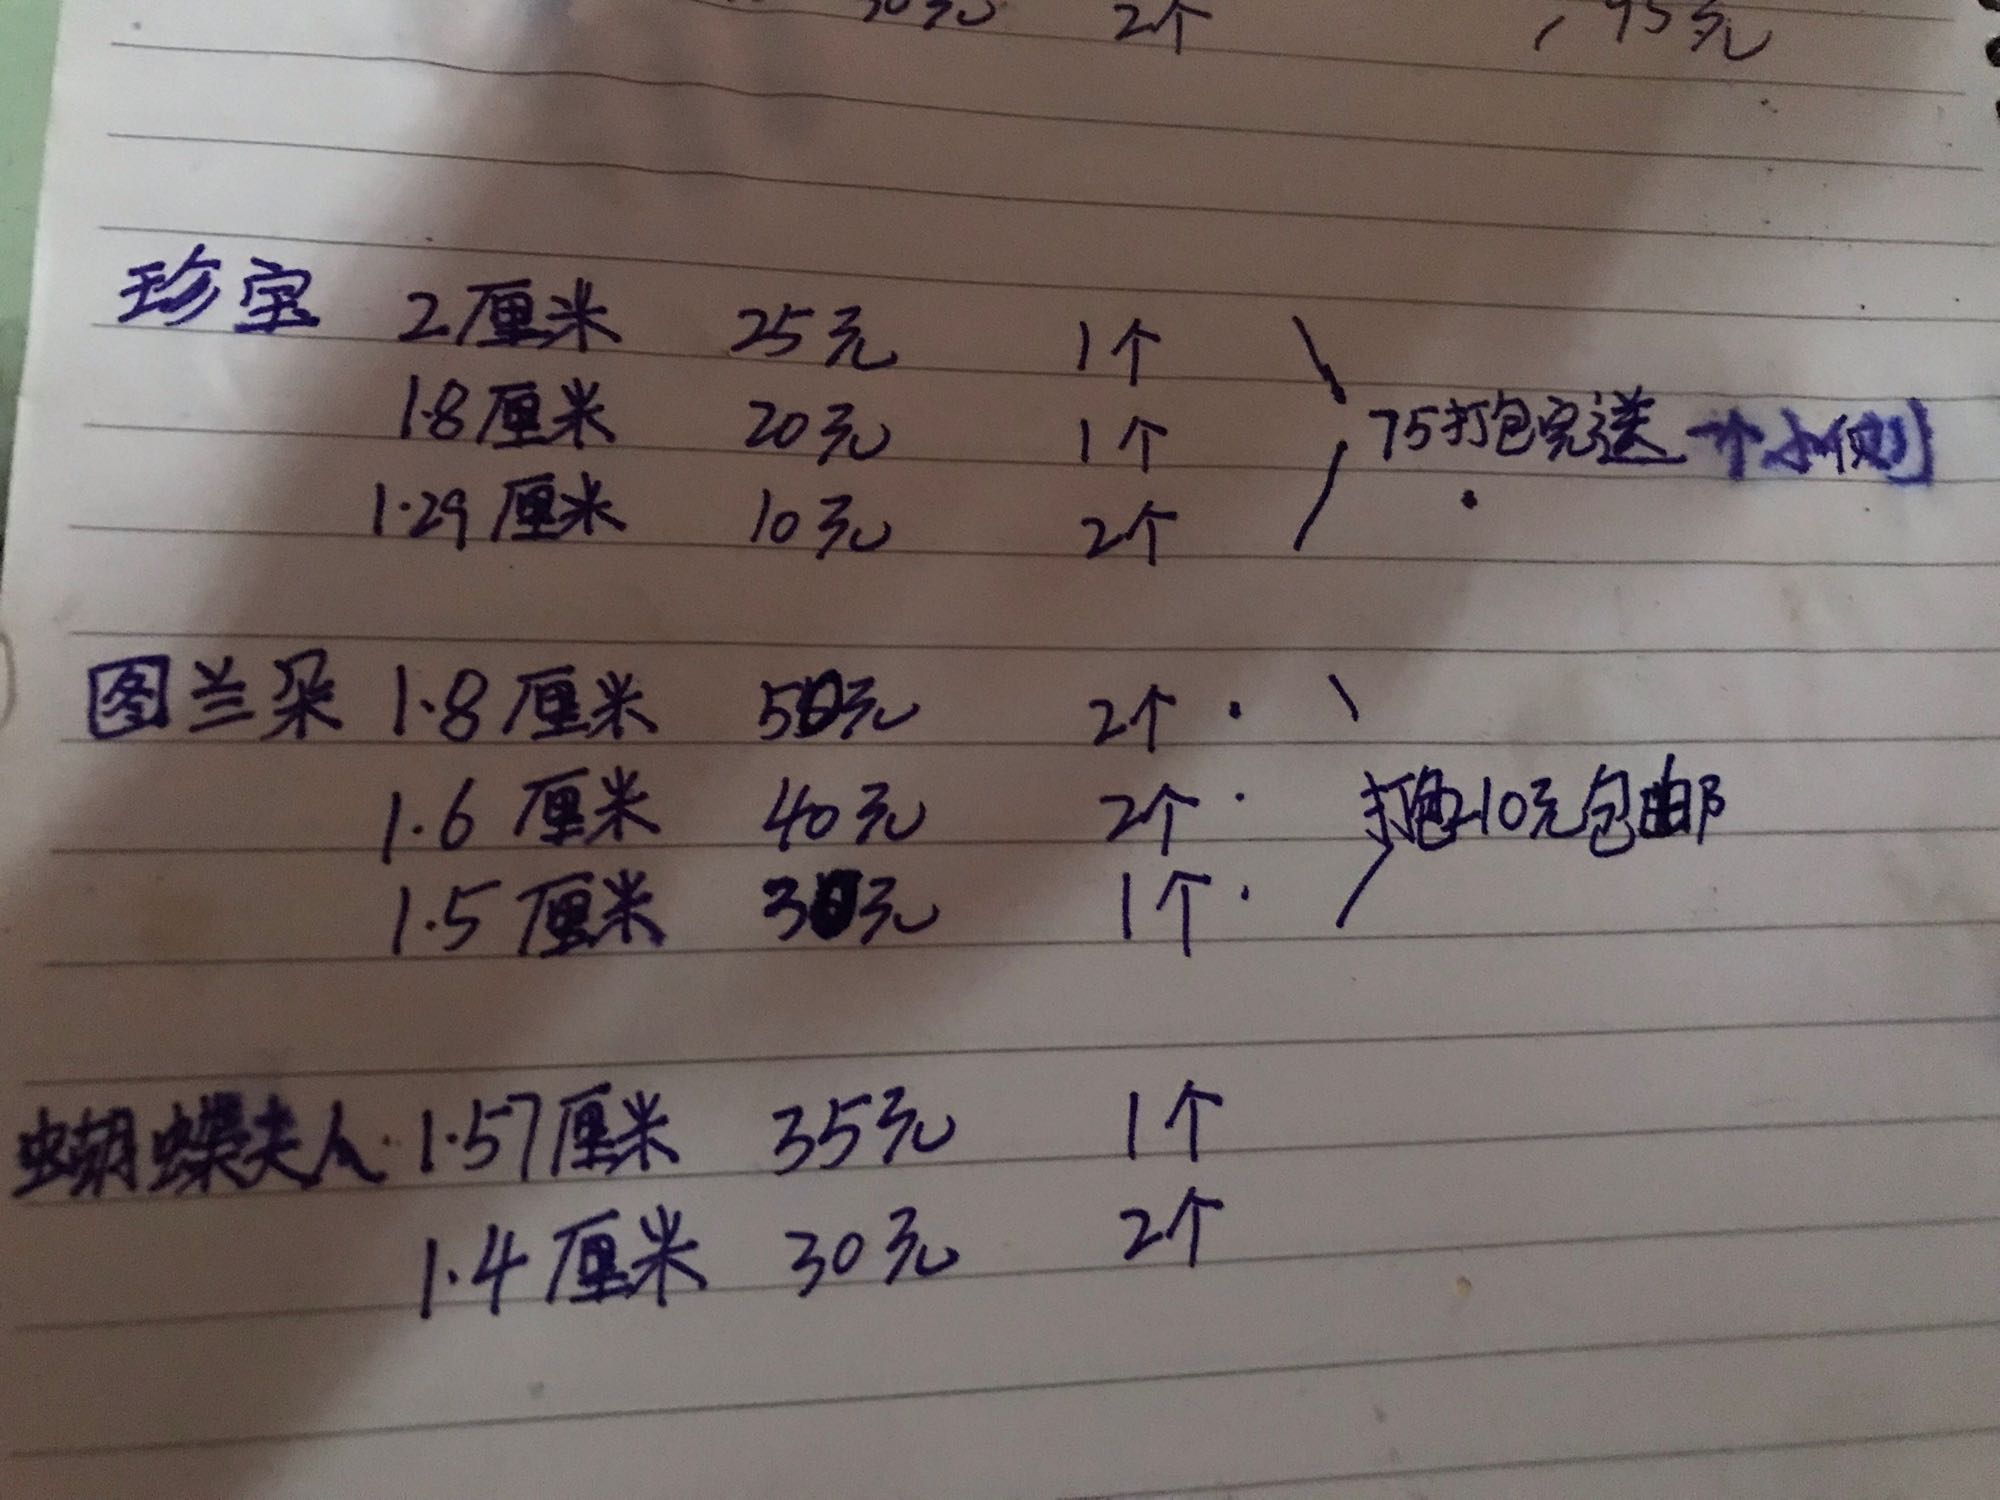 30元 2个 95元
珍宝 2厘米 25元 1个
1.8厘米 20元 1个
75打包完送一个小侧
1.29厘米 10元 2个
图兰朵 1.8厘米 50元 2个
1.6厘米 40元 2个
打包210元包邮
1.5厘米 30元 1个
蝴蝶夫人 1.57厘米 35元 1个
1.4厘米 30元 2个